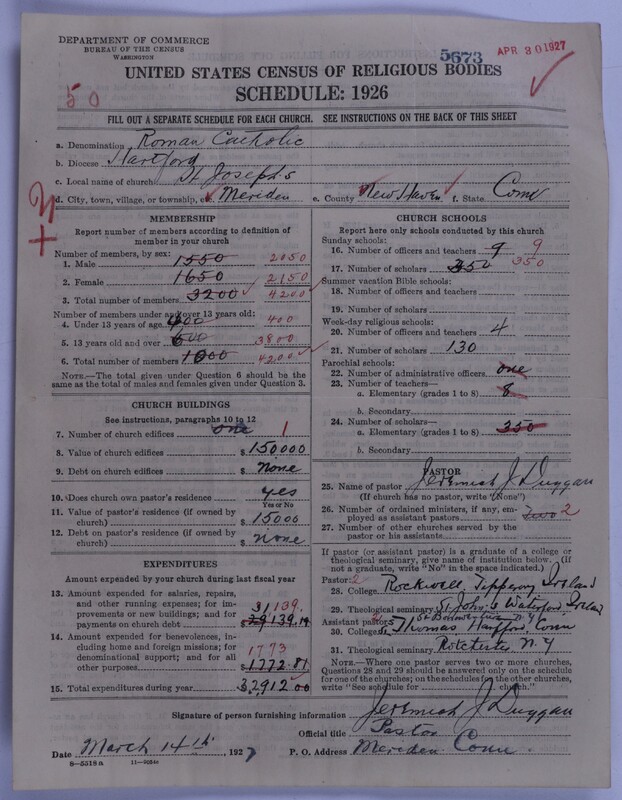 DEPARTMENT OF COMMERCE
BUREAU OF THE CENSUS
WASHINGTON
5673
APR 30 1927
UNITED STATES CENSUS OF RELIGIOUS BODIES
SCHEDULE: 1926
50
FILL OUT A SEPARATE SCHEDULE FOR EACH CHURCH. SEE INSTRUCTIONS ON THE BACK OF THIS SHEET
a. Denomination Roman Catholic
b. Diocese Hartford
c. Local name of church St Joseph's
d. City, town, village, or township, etc. Meriden e. County New Haven f. State Conn
MEMBERSHIP
Report number of members according to definition of
member in your church
Number of members, by sex:
1. Male 1550 2050
2. Female 1650 2150
3. Total number of members 3200 4200
Number of members under and over 13 years old:
4. Under 13 years of age 400 400
5. 13 years old and over 600 3800
6. Total number of members 1000 4200
NOTE.—The total given under Question 6 should be
the same as the total of males and females given under Question 3.
CHURCH BUILDINGS
See instructions, paragraphs 10 to 12
7. Number of church edifices one 1
8. Value of church edifices $ 150000
9. Debt on church edifices $ None
10. Does church own pastor's residence yes
Yes or No
11. Value of pastor's residence (if owned by
church) $ 15000
12. Debt on pastor's residence (if owned by
church) $ None
EXPENDITURES
Amount expended by your church during last fiscal year
13. Amount expended for salaries, repairs,
and other running expenses; for im-
provements or new buildings; and for
payments on church debt $ 31,139.
14. Amount expended for benevolences,
including home and foreign missions; for
denominational support; and for all
other purposes 1773
$ 1772.81
15. Total expenditures during year $ 32912 00
CHURCH SCHOOLS
Report here only schools conducted by this church
Sunday schools:
16. Number of officers and teachers 9 9
17. Number of scholars 350 350
Summer vacation Bible schools:
18. Number of officers and teachers
19. Number of scholars
Week-day religious schools:
20. Number of officers and teachers 4
21. Number of scholars 130
Parochial schools:
22. Number of administrative officers one
23. Number of teachers—
a. Elementary (grades 1 to 8) 8
b. Secondary
24. Number of scholars—
a. Elementary (grades 1 to 8) 350
b. Secondary
PASTOR
25. Name of pastor Jeremiah J. Duggan
(If church has no pastor, write "None")
26. Number of ordained ministers, if any, em-
ployed as assistant pastors Two 2
27. Number of other churches served by the
pastor or his assistante
If pastor (or assistant pastor) is a graduate of a college or
theological seminary, give name of institution below. (If
not a graduate, write "No" in the space indicated.)
Pastor: 2
28. College Rockwell, Tipperary Ireland
29. Theological seminary St John's Waterford Ireland
Assistant pastor:
30. College St Thomas Hartford, Conn
31. Theological seminary Rochester N.Y
NOTE.—Where one pastor serves two or more churches,
Questions 28 and 29 should be answered only on the schedule
for one of the churches; on the schedules for the other churches,
write "See schedule for church."
Signature of person furnishing information Jeremiah J Duggan
Official title Pastor
Date March 14th, 1927 P. O. Address Meriden Conn.
8—5518a 11—9024